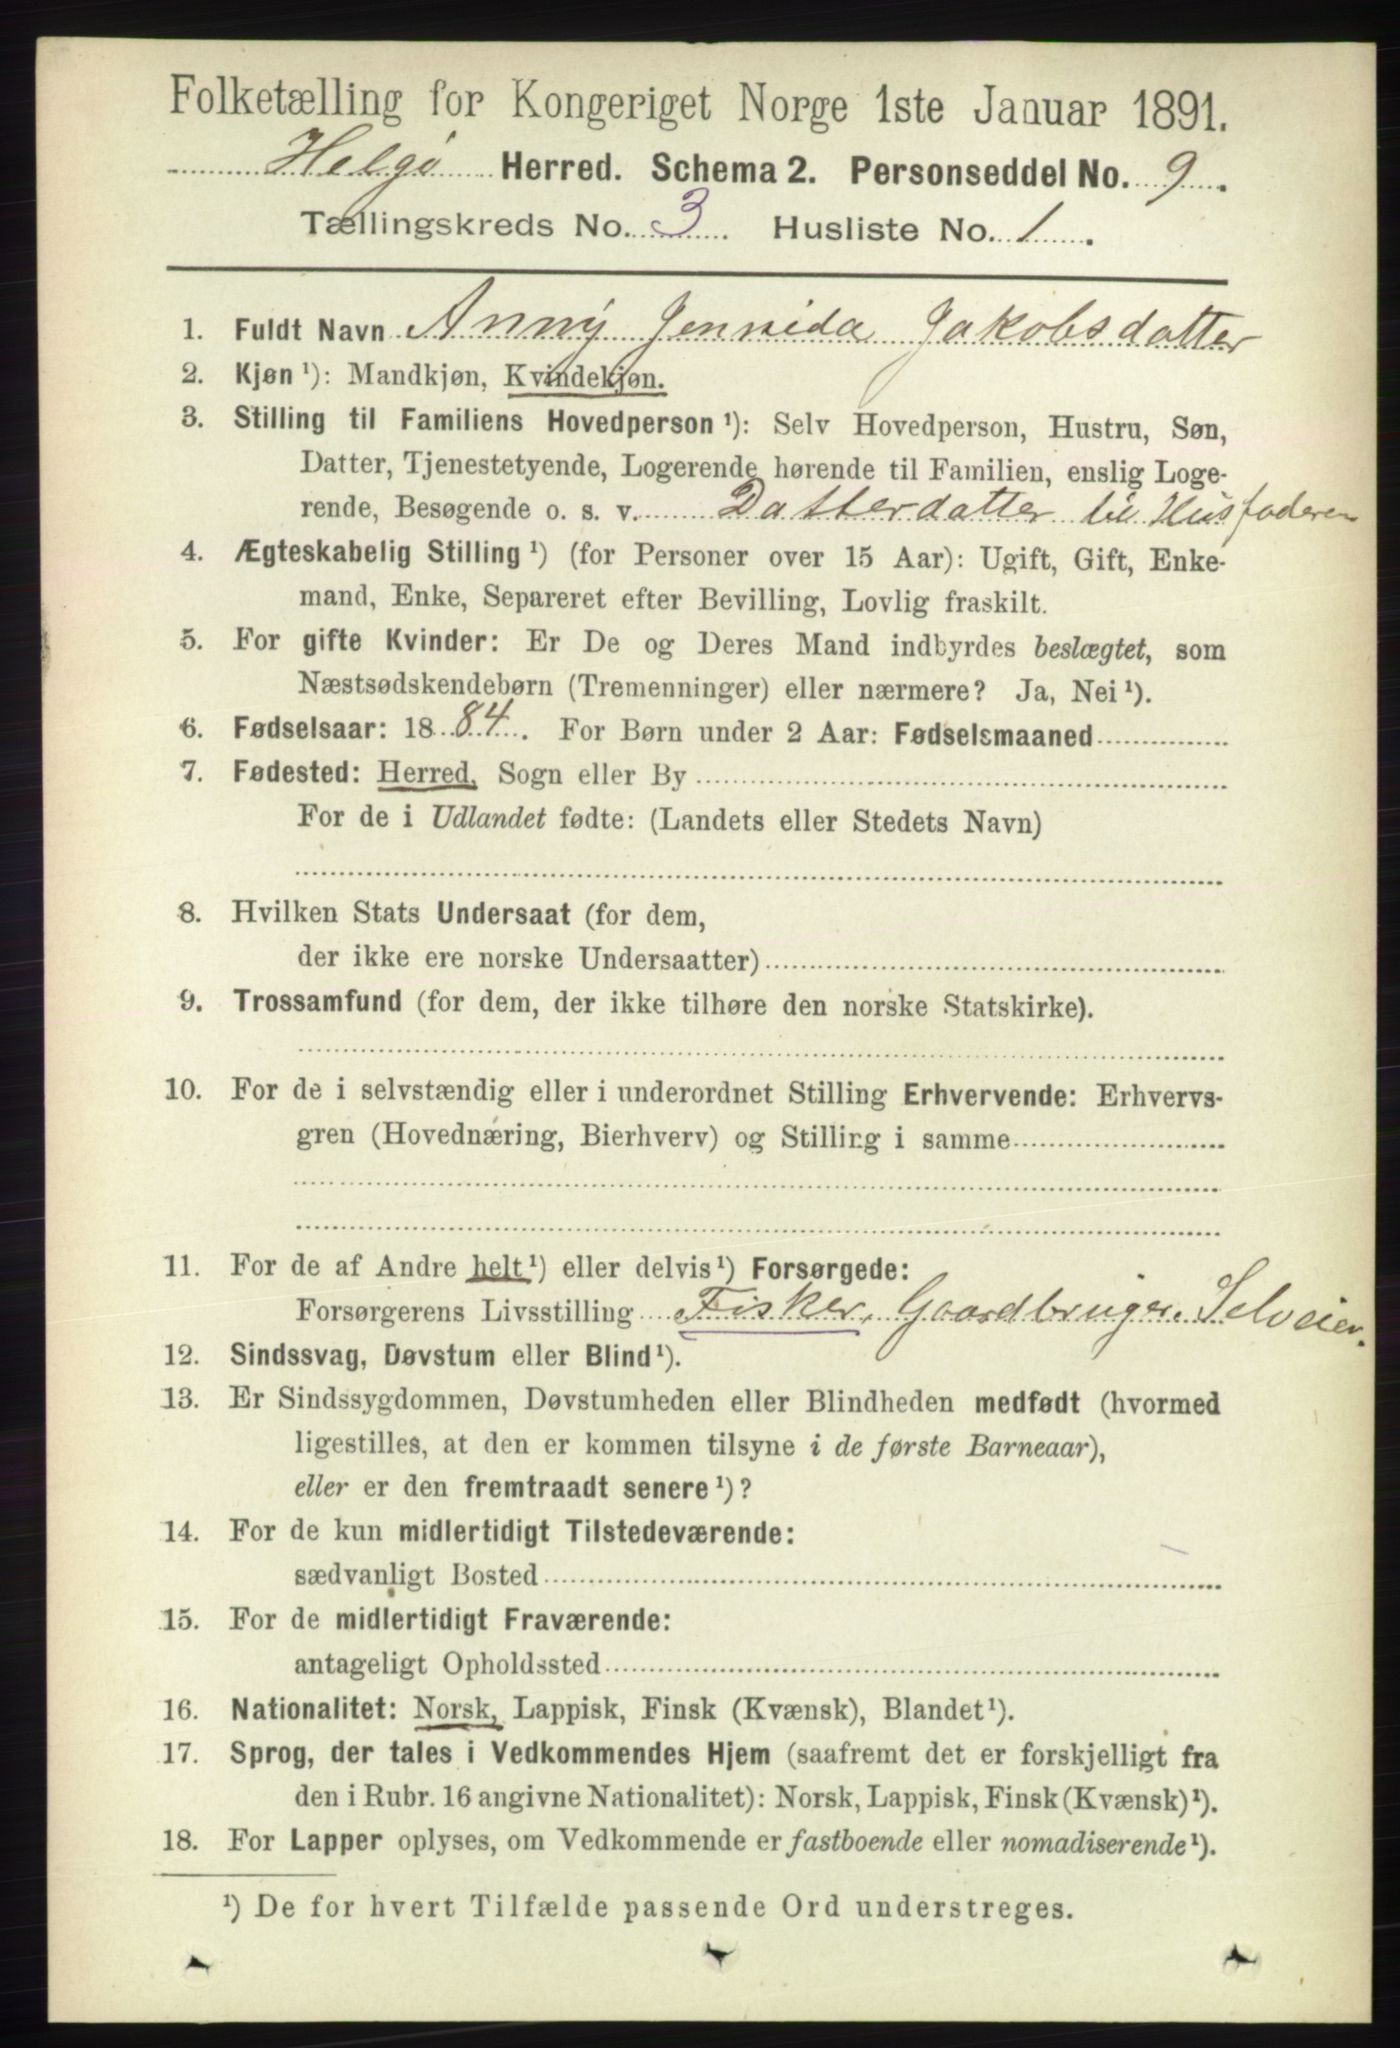 Folketælling for Kongeriget Norge 1ste Januar 1891.
Helgø Herred. Schema 2. Personseddel No. 9.
Tællingskreds No. 3. Husliste No. 1.
1. Fuldt Navn Anny Jennida Jakobsdatter
2. Kjøn ¹): Mandkjøn, Kvindekjøn.
3. Stilling til Familiens Hovedperson ¹): Selv Hovedperson, Hustru, Søn,
Datter, Tjenestetyende, Logerende hørende til Familien, enslig Loge-
rende, Besøgende o. s. v. Datterdatter til Husfaderen
4. Ægteskabelig Stilling ¹) (for Personer over 15 Aar): Ugift, Gift, Enke-
mand, Enke, Separeret efter Bevilling, Lovlig fraskilt.
5. For gifte Kvinder: Er De og Deres Mand indbyrdes beslægtet, som
Næstsødskendebørn (Tremenninger) eller nærmere? Ja, Nei ¹).
6. Fødselsaar: 1884. For Børn under 2 Aar: Fødselsmaaned
7. Fødested: Herred, Sogn eller By
For de i Udlandet fødte: (Landets eller Stedets Navn)
8. Hvilken Stats Undersaat (for dem,
der ikke ere norske Undersaatter)
9. Trossamfund (for dem, der ikke tilhøre den norske Statskirke).
10. For de i selvstændig eller i underordnet Stilling Erhvervende: Erhvervs-
gren (Hovednæring, Bierhverv) og Stilling i samme
11. For de af Andre helt ¹) eller delvis ¹) Forsørgede:
Forsørgerens Livsstilling Fisker, Gaardbruger. Selveier.
12. Sindssvag, Døvstum eller Blind ¹).
13. Er Sindssygdommen, Døvstumheden eller Blindheden medfødt (hvormed
ligestilles, at den er kommen tilsyne i de første Barneaar),
eller er den fremtraadt senere ¹)?
14. For de kun midlertidigt Tilstedeværende:
sædvanligt Bosted
15. For de midlertidigt Fraværende:
antageligt Opholdssted
16. Nationalitet: Norsk, Lappisk, Finsk (Kvænsk), Blandet ¹).
17. Sprog, der tales i Vedkommendes Hjem (saafremt det er forskjelligt fra
den i Rubr. 16 angivne Nationalitet): Norsk, Lappisk, Finsk (Kvænsk) ¹).
18. For Lapper oplyses, om Vedkommende er fastboende eller nomadiserende ¹).
¹) De for hvert Tilfælde passende Ord understreges.